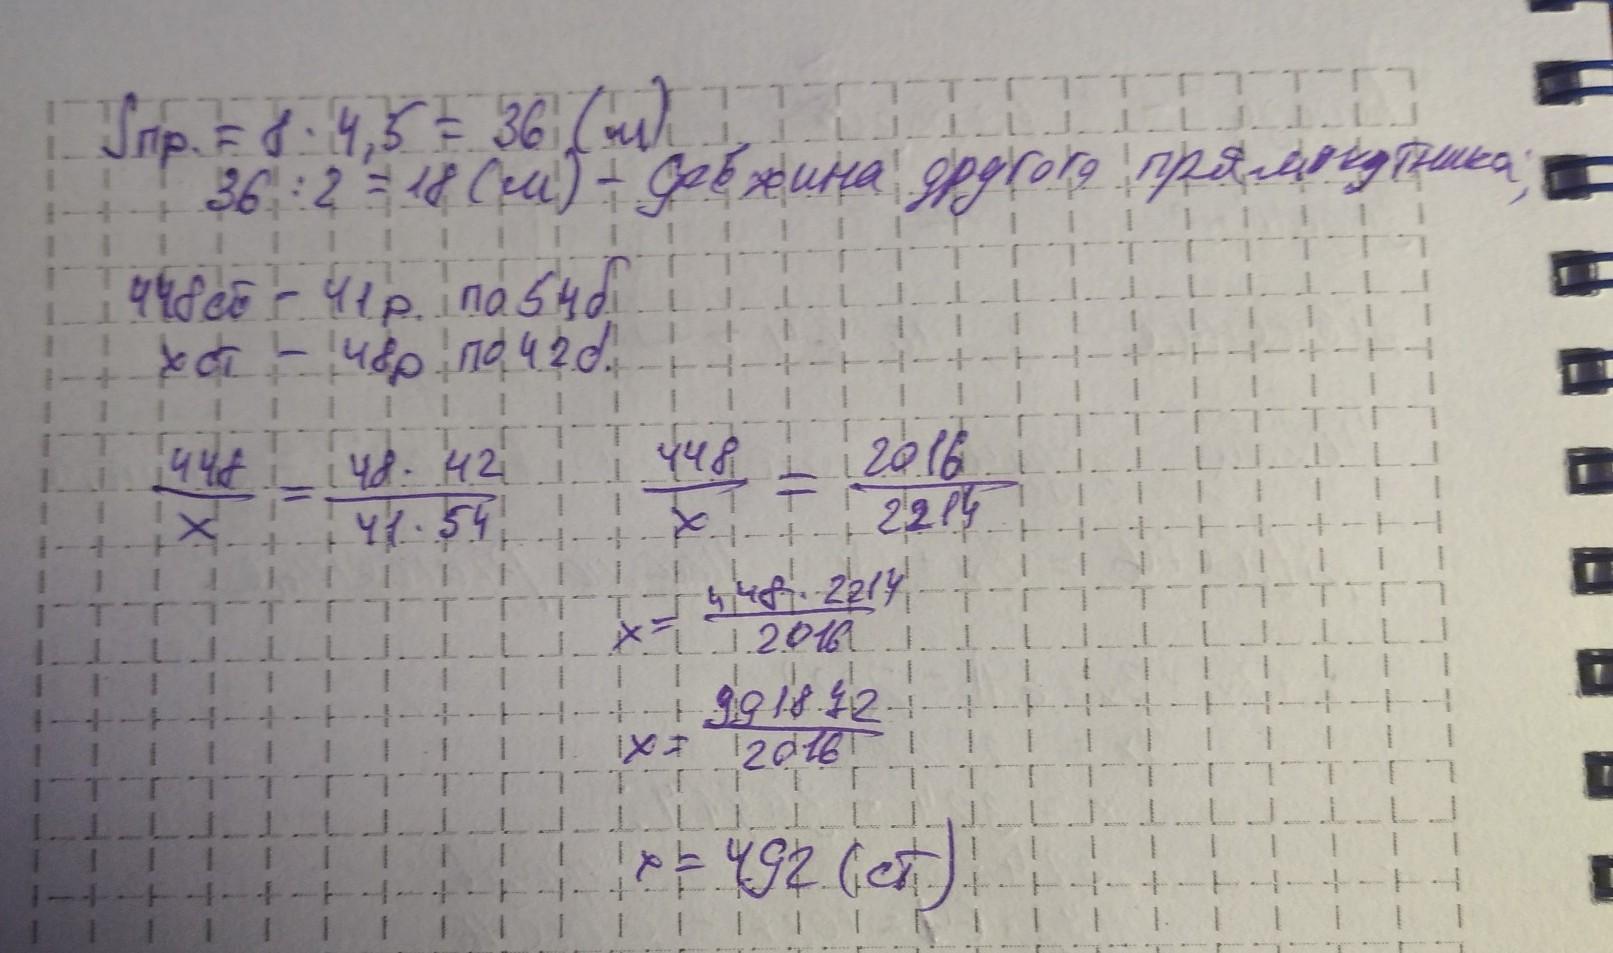 Sпр. = 8 · 4,5 = 36 (м)
36 : 2 = 18 (м) - довжина другого прямокутника;
448 ст - 41 р. по 54 б
х ст - 48 р по 42 б.
448/х = 48 · 42/41 · 54 448/х = 2016/2214
х = 448 · 2214/2016
х = 991872/2016
х = 492 (ст)